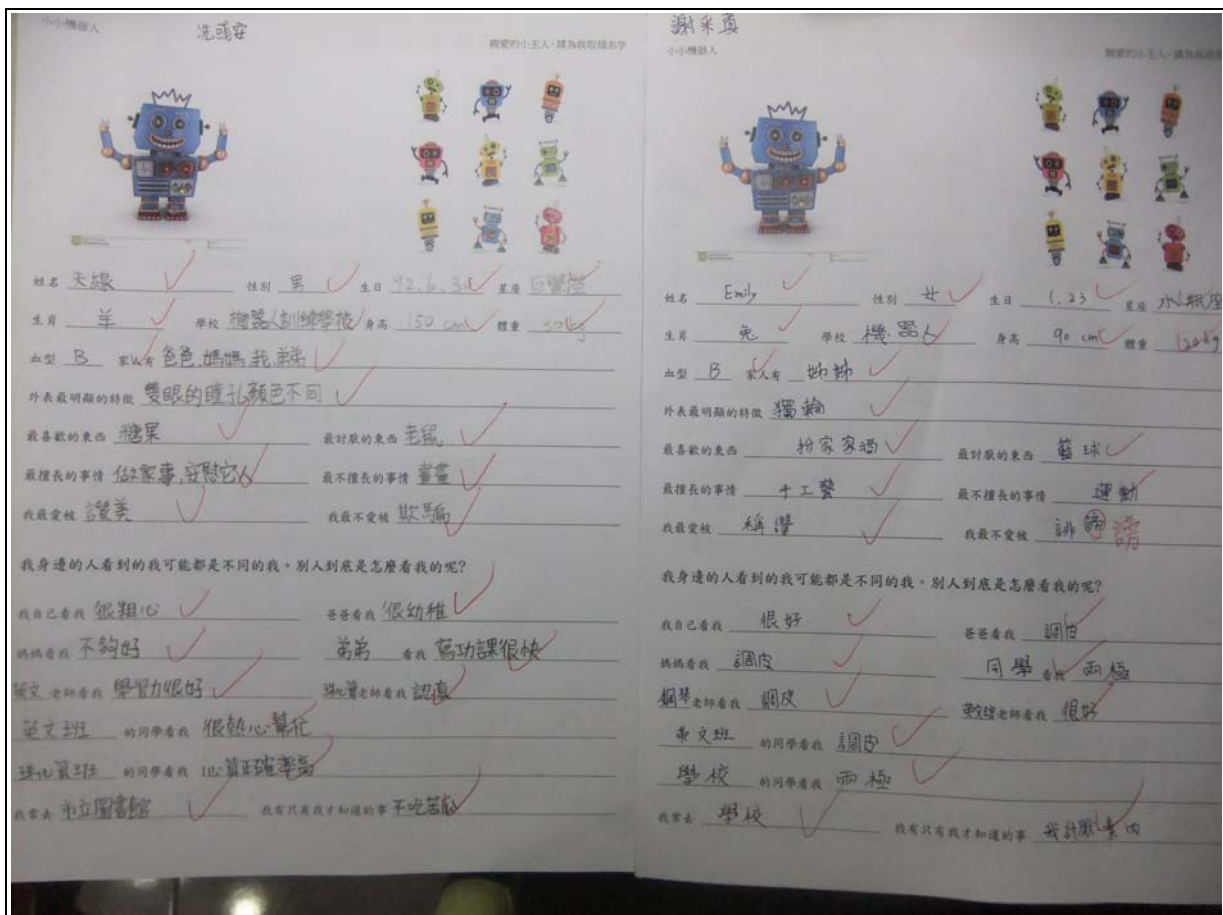 小小機器人
冼或安
親愛的小主人，請為我取個名字
姓名 天線 性別 男 生日 92.6.30 星座 巨蟹座
生肖 羊 學校 機器人訓練學校 身高 150 cm 體重 30kg
血型 B 家人有 爸爸、媽媽、我、弟弟
外表最明顯的特徵 雙眼的瞳孔顏色不同
最喜歡的東西 糖果 最討厭的東西 老鼠
最擅長的事情 做家事、安慰它人 最不擅長的事情 畫畫
我最愛被 讚美 我最不愛被 欺騙
我身邊的人看到的我可能都是不同的我。別人到底是怎麼看我的呢？
我自己看我 很粗心 爸爸看我 很幼稚
媽媽看我 不夠好 弟弟 看我 寫功課很快
英文 老師看我 學習力很好 珠心算老師看我 認真
英文班 的同學看我 很熱心幫忙
珠心算班 的同學看我 心算正確率高
我常去 市立圖書館 我有只有我才知道的事 不吃苦瓜
謝采真
小小機器人
親愛的小主人，請為我取個
姓名 Emily 性別 女 生日 1.23 星座 水瓶座
生肖 兔 學校 機器人 身高 90 cm 體重 120kg
血型 B 家人有 姊姊
外表最明顯的特徵 獨輪
最喜歡的東西 扮家家酒 最討厭的東西 籃球
最擅長的事情 手工藝 最不擅長的事情 運動
我最愛被 稱讚 我最不愛被 誹謗 謗
我身邊的人看到的我可能都是不同的我。別人到底是怎麼看我的呢？
我自己看我 很好 爸爸看我 調皮
媽媽看我 調皮 同學 看我 兩極
鋼琴老師看我 調皮 老師看我 很好
英文班 的同學看我 調皮
學校 的同學看我 兩極
我常去 學校 我有只有我才知道的事 我討厭